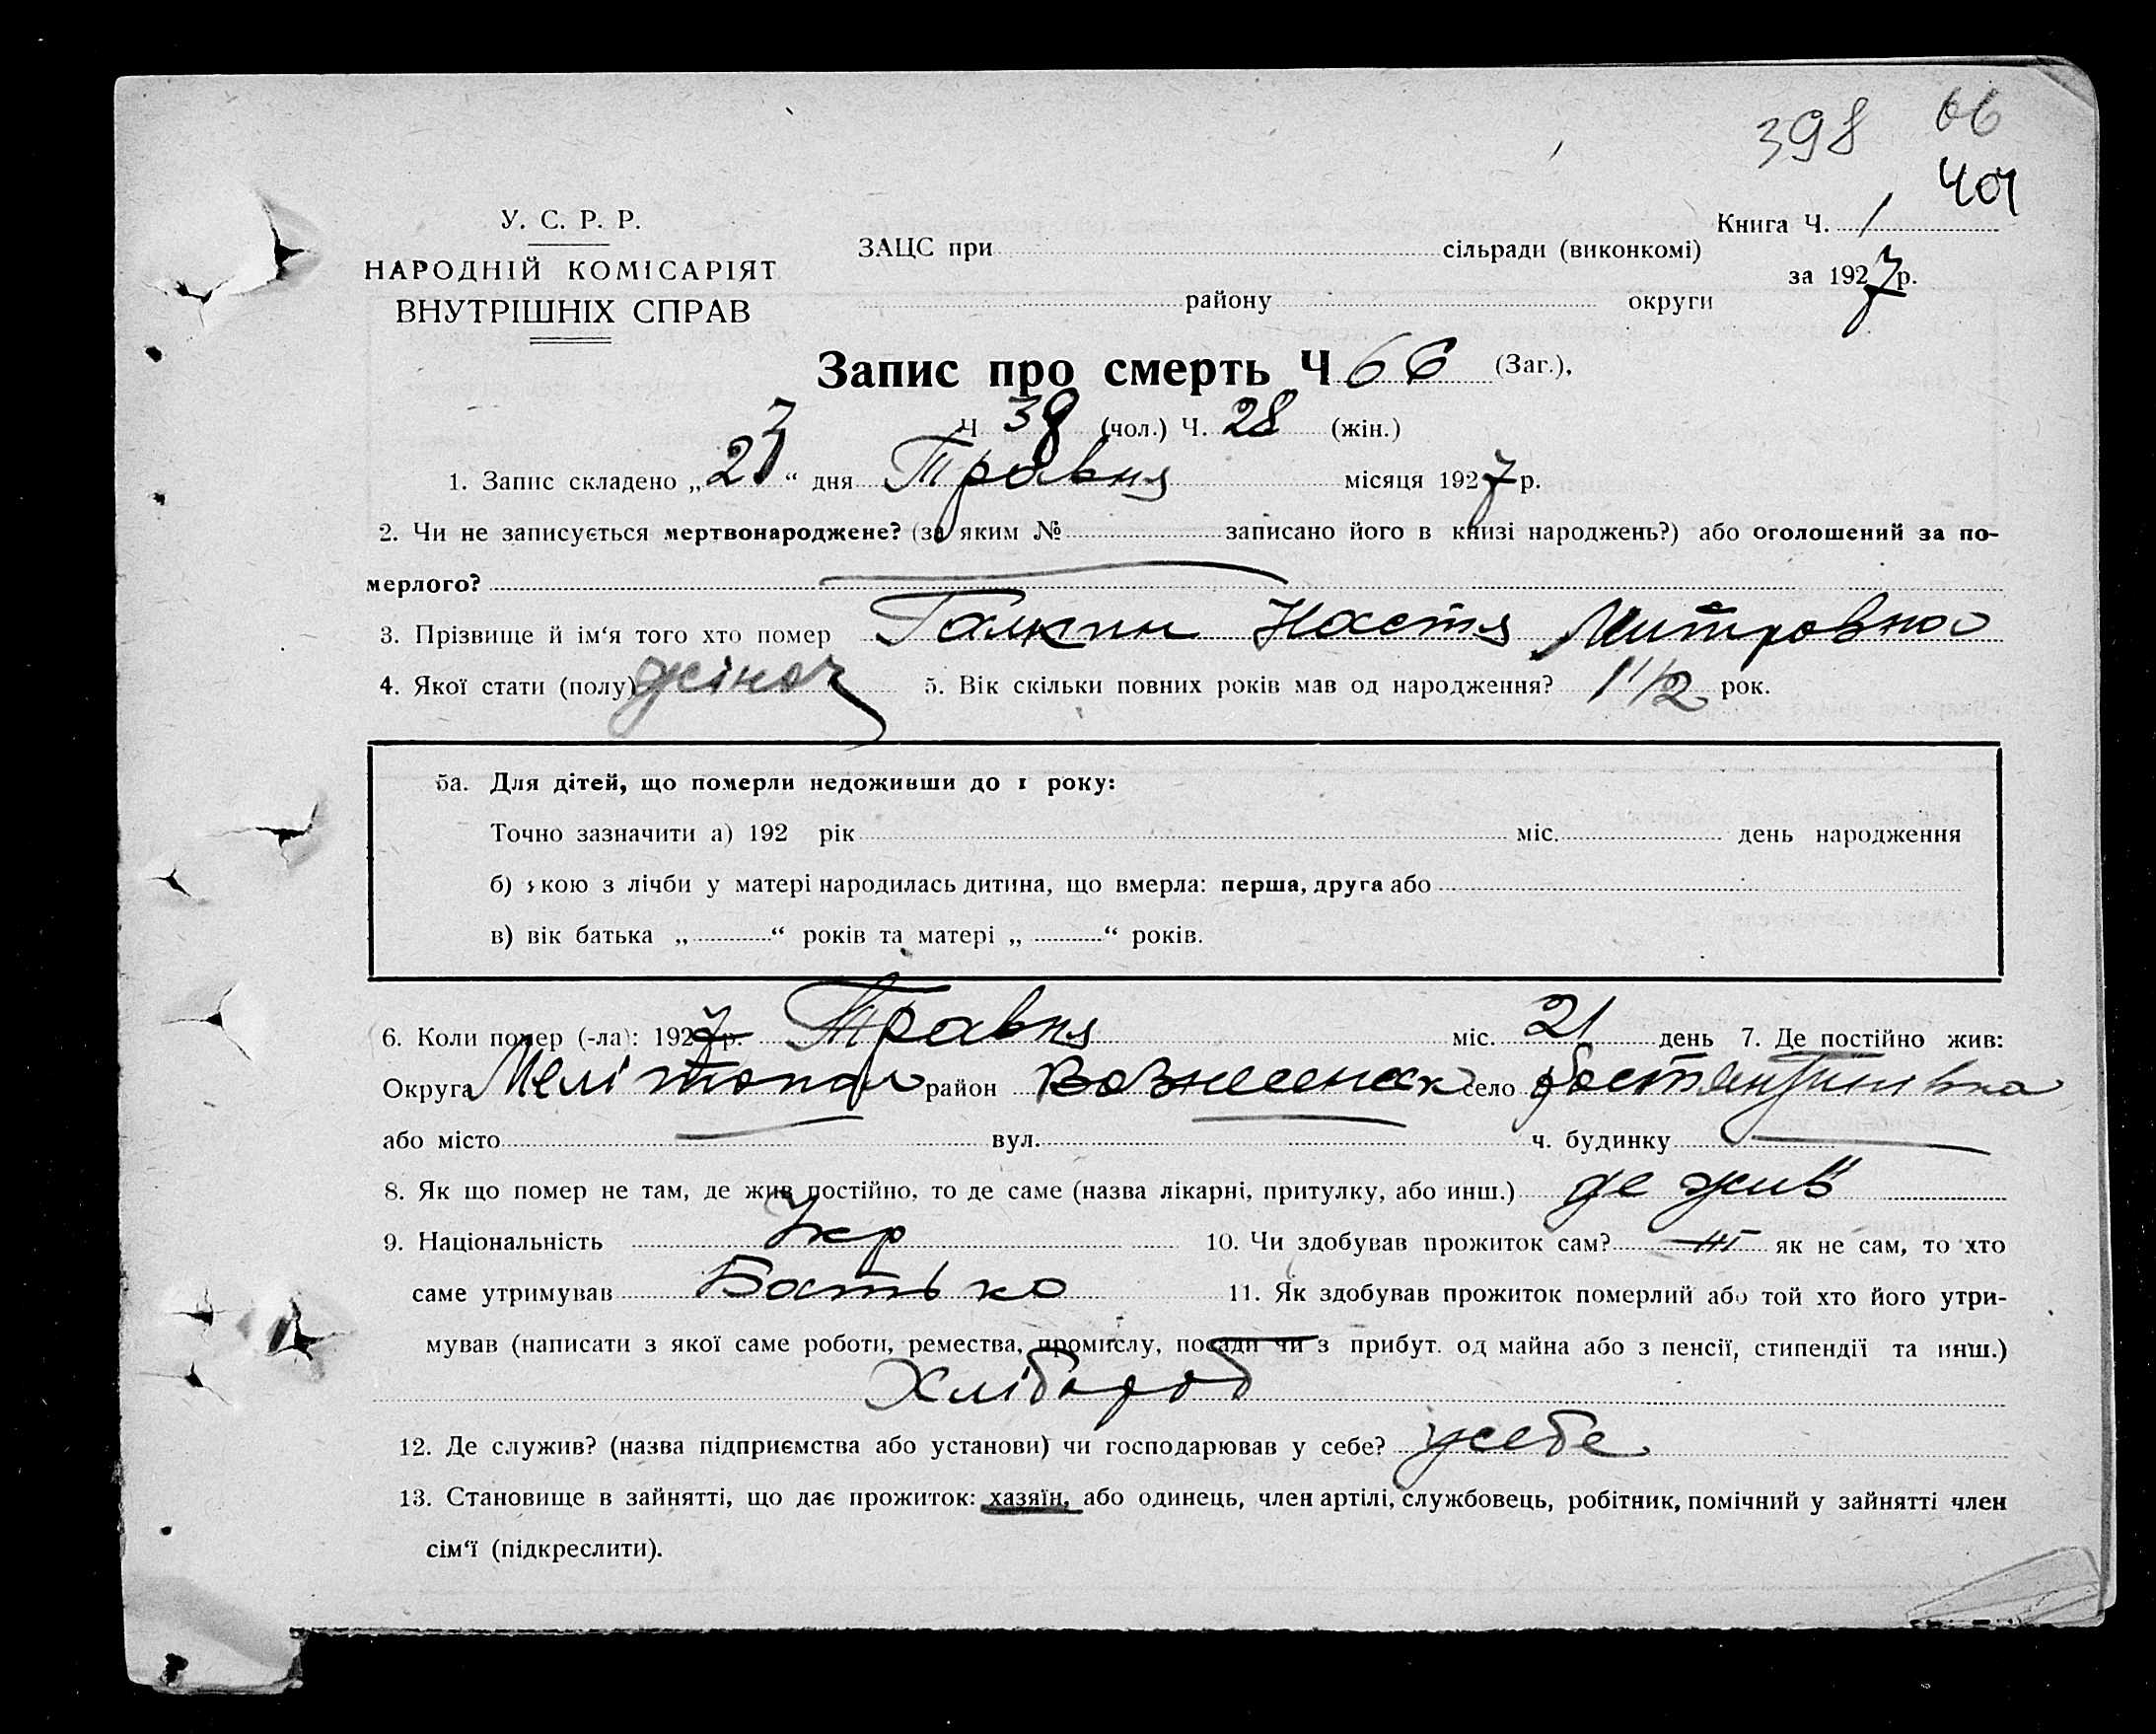 398 66
401
У. С. Р. Р.
НАРОДНІЙ КОМІСАРІЯТ
ВНУТРІШНІХ СПРАВ
ЗАЦС при сільради (виконкомі)
району округи
Книга Ч. 1
за 1927 р.
Запис про смерть Ч 66 (Заг.),
Ч 38 (чол.) Ч. 28 (жін.)
1. Запис складено „23“ дня Травня місяця 1927 р.
2. Чи не записується мертвонароджене? (за яким № записано його в книзі народжень?) або оголошений за по-
мерлого?
3. Прізвище й ім‘я того хто помер Галкин Настя Митровна
4. Якої стати (полу) жіноч 5. Вік скільки повних років мав од народження? 1 1/2 рок.
5а. Для дітей, що померли недоживши до 1 року:
Точно зазначити а) 192 рік міс. день народження
б) якою з лічби у матері народилась дитина, що вмерла: перша, друга або
в) вік батька „ “ років та матері „ “ років.
6. Коли помер (-ла): 1927 р. Травня міс. 21 день 7. Де постійно жив:
Округа Мелітопол район Вознесенск село
або місто вул. ч. будинку
8. Як що помер не там, де жив постійно, то де саме (назва лікарні, притулку, або инш.) де жив
9. Національність Укр 10. Чи здобував прожиток сам? ні як не сам, то хто
саме утримував Батько 11. Як здобував прожиток померлий або той хто його утри-
мував (написати з якої саме роботи, ремества, промислу, посади чи з прибут. од майна або з пенсії, стипендії та инш.)
Хлібороб
12. Де служив? (назва підприємства або установи) чи господарював у себе? усебе
13. Становище в зайнятті, що дає прожиток: хазяїн, або одинець, член артілі, службовець, робітник, помічний у зайнятті член
сім‘ї (підкреслити).